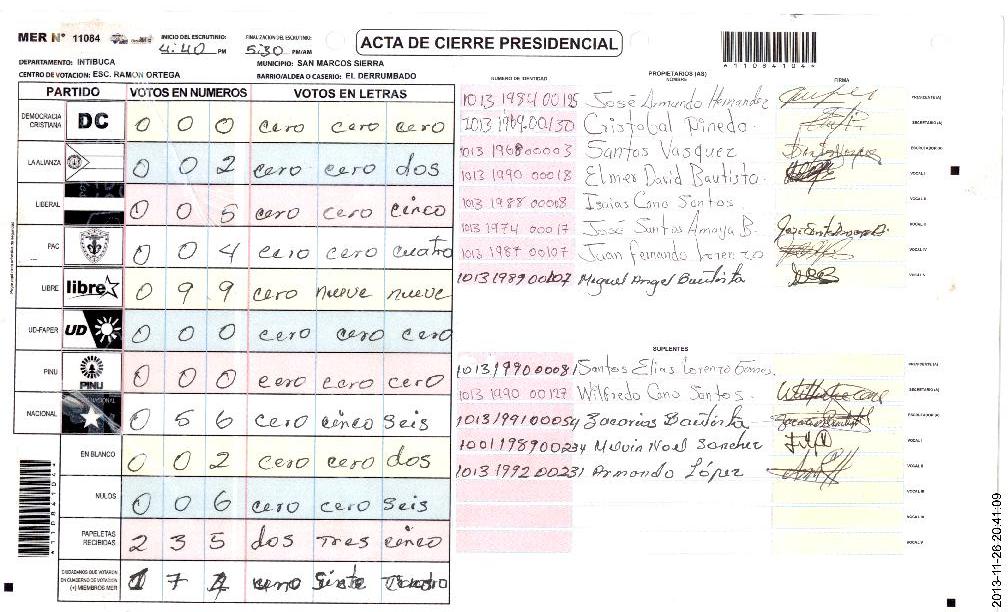 MER Nº 11084
INICIO DEL ESCRUTINIO: 4:40 PM
FINALIZACION DEL ESCRUTINIO: 5:30 PM/AM
ACTA DE CIERRE PRESIDENCIAL
A11084104
DEPARTAMENTO: INTIBUCA
MUNICIPIO: SAN MARCOS SIERRA
CENTRO DE VOTACION: ESC. RAMON ORTEGA
BARRIO/ALDEA O CASERIO: EL DERRUMBADO
PARTIDO VOTOS EN NUMEROS VOTOS EN LETRAS
DEMOCRACIA CRISTIANA DC 0 0 0 cero cero cero
LA ALIANZA 0 0 2 cero cero dos
LIBERAL 0 0 5 cero cero cinco
PAC 0 0 4 cero cero cuatro
LIBRE libre 0 9 9 cero nueve nueve
UD-FAPER UD 0 0 0 cero cero cero
PINU PINU 0 0 0 cero cero cero
NACIONAL NACIONAL 0 5 6 cero cinco seis
EN BLANCO 0 0 2 cero cero dos
NULOS 0 0 6 cero cero seis
PAPELETAS RECIBIDAS 2 3 5 dos tres cinco
CIUDADANOS QUE VOTARON EN CUADERNO DE VOTACION (+) MIEMBROS MER 7 siete
NUMERO DE IDENTIDAD PROPIETARIOS (AS) NOMBRE FIRMA
José Armando Hernandez PRESIDENTE(A)
Cristobal Pineda SECRETARIO (A)
1013 1968 00003 Santos Vasquez ESCRUTADOR (A)
1013 1990 00018 Elmer David Bautista VOCAL I
1013 1988 00068 Isaias Cano Santos VOCAL II
1013 1974 00017 José Santos Amaya B. VOCAL III
1013 1987 00107 Juan Fernando Lorenzo VOCAL IV
1013 1989 00207 Miguel Angel Bautista VOCAL V
SUPLENTES
1013 1990 00081 Santos Elias Lorenzo Gomes PRESIDENTE (A)
1013 1990 00127 Wilfredo Cano Santos SECRETARIO (A)
1013 1991 00054 Zacarias Bautista ESCRUTADOR (A)
1001 1989 00234 Melvin Noel Sanchez VOCAL I
1013 1992 00231 Armando López VOCAL II
VOCAL III
VOCAL IV
VOCAL V
A11084104
2013-11-26 20:41:09